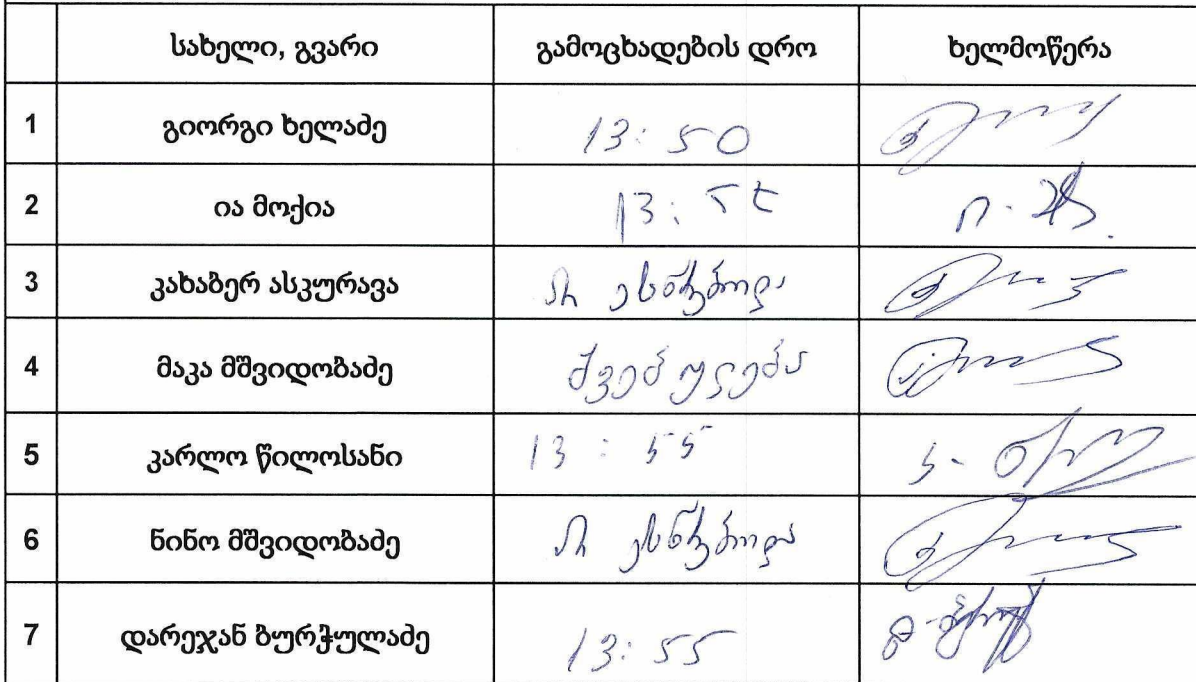 სახელი, გვარი გამოცხადების დრო ხელმოწერა
1 გიორგი ხელაძე 13:50
2 ია მოქია
3 კახაბერ ასკურავა არ ესწრებოდა
4 მაკა მშვიდობაძე შვებულება
5 კარლო წილოსანი 13:55
6 ნინო მშვიდობაძე არ ესწრებოდა
7 დარეჯან ბურჭულაძე 13:55